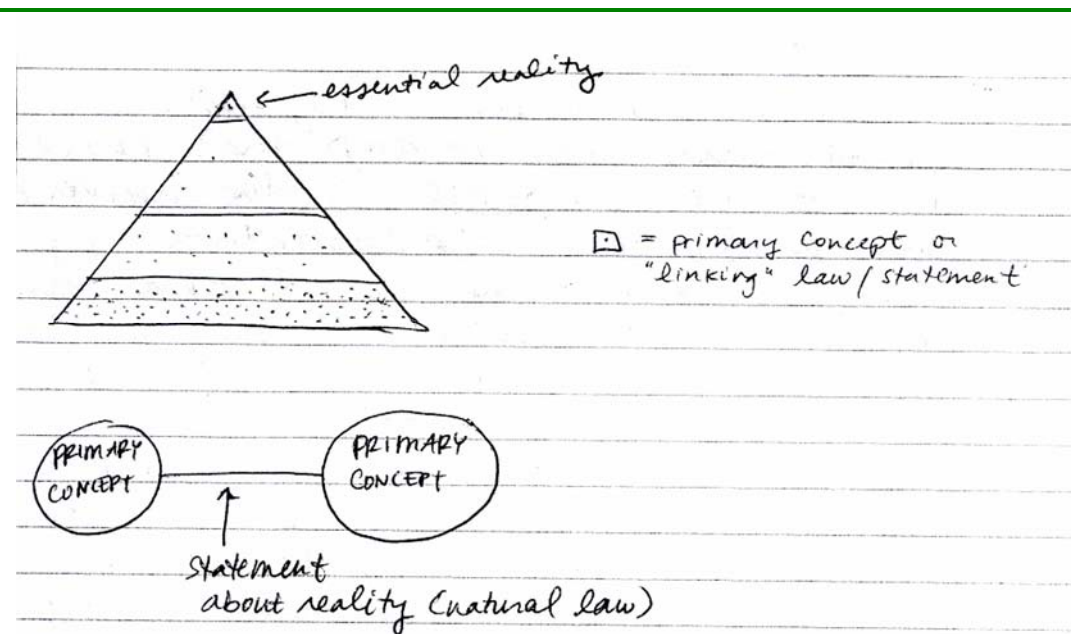 essential reality
⊡ = primary concept or
"linking" law / statement
PRIMARY
CONCEPT
PRIMARY
CONCEPT
statement
about reality (natural law)